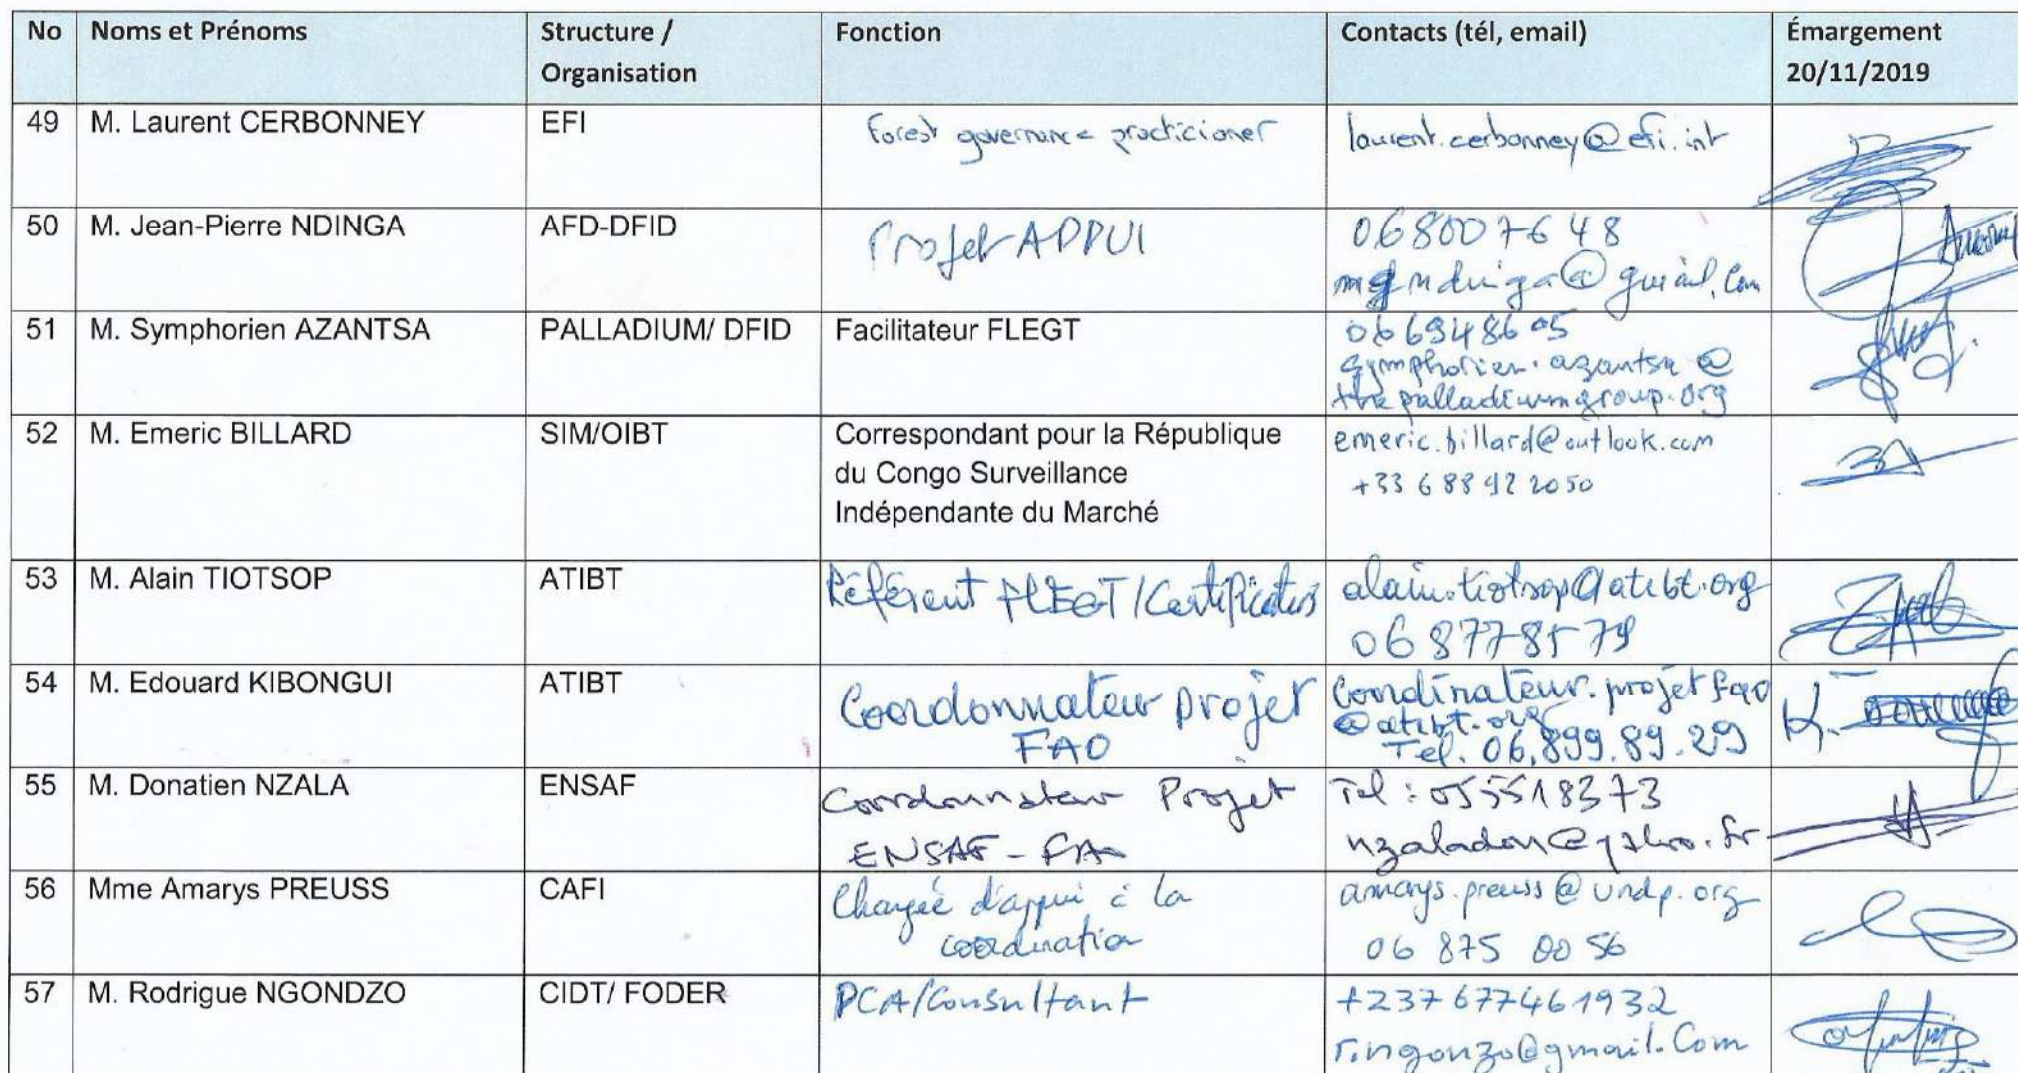 No Noms et Prénoms Structure / Fonction Contacts (tél, email) Émargement
Organisation 20/11/2019
49 M. Laurent CERBONNEY EFI Forest governance practicioner laurent.cerbonney@efi.int
50 M. Jean-Pierre NDINGA AFD-DFID Projet APPUI 068007648
51 M. Symphorien AZANTSA PALLADIUM/ DFID Facilitateur FLEGT 066948605
symphorien.azantsa @
thepalladiumgroup.org
52 M. Emeric BILLARD SIM/OIBT Correspondant pour la République emeric.billard@outlook.com
du Congo Surveillance +33 6 88 42 20 50
Indépendante du Marché
53 M. Alain TIOTSOP ATIBT Référent FLEGT/Certification alain.tiotsop@atibt.org
06 877 85 79
54 M. Edouard KIBONGUI ATIBT Coordonnateur projet coordinateur.projetfao
FAO @atibt.org
Tel. 06.899.89.29
55 M. Donatien NZALA ENSAF Coordonnateur Projet Tel : 055518373
ENSAF - FAO nzaladon@yahoo.fr
56 Mme Amarys PREUSS CAFI Chargée d'appui à la amarys.preuss@undp.org
coordination 06 875 00 56
57 M. Rodrigue NGONDZO CIDT/ FODER PCA/Consultant +237 677461932
r.ngonzo@gmail.Com